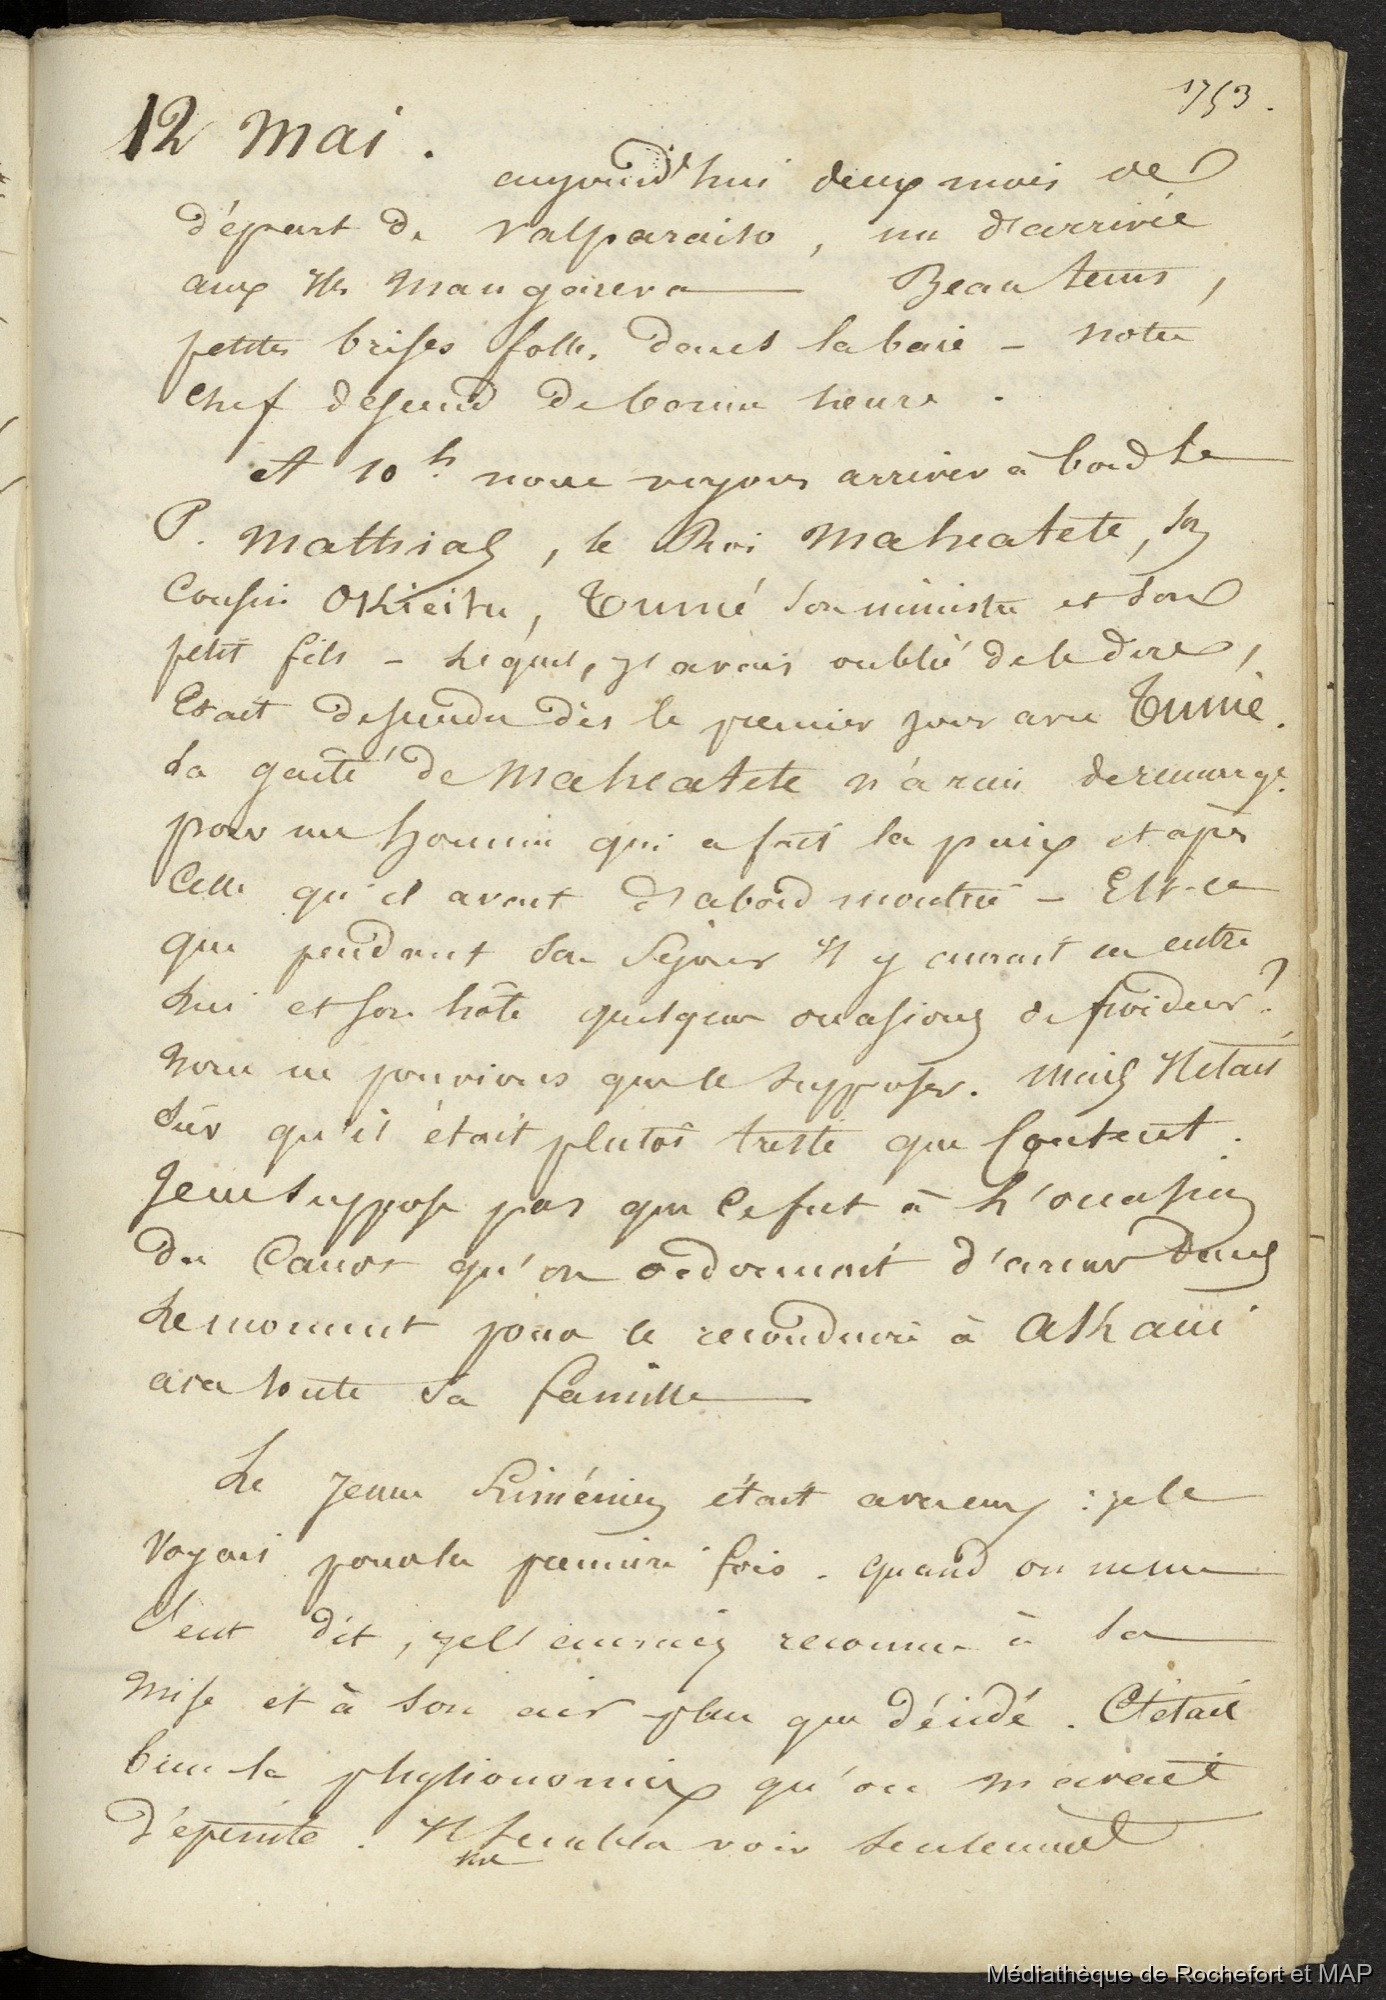 1753.
12 Mai.
aujourd'hui deux mois de
départ de Valparaiso, un d'arrivée
aux Iles Mangareva — Beau tems,
petites brises folles dans la baie — notre
chef descend de bonne heure.
A 10h. nous voyons arriver à bord le
P. Mathias, le Roi Maheatete, son
Cousin Okieitu, Tumé son ministre et son
petit fils — lequel, j'avais oublié de le dire,
Etait descendu dès le premier jour avec Tumé.
La gaité de Maheatete n'a rien de remarqe.
pour un homme qui a fait la paix et après
Celle qu'il avait d'abord montrée — Est-ce
que pendant son séjour il y aurait eu entre
lui et son hôte quelques occasions de froideur?
Nous ne pouvions que le supposer. Mais il était
sûr qu'il était plutôt triste que Content.
Je ne suppose pas que ce fut à l'occasion
du Canot qu'on ordonnait d'armer dans
le moment pour le reconduire à Akaui
avec toute sa famille —
Le jeune Liménien était avec eux : je le
Voyais pour la première fois. quand on ne me
l'eut dit, je l'aurais reconnu à sa
mise et à son air plus que décidé. C'était
bien la physionomie qu'on m'avait
dépeinte. Il me sembla voir seulement
Médiathèque de Rochefort et MAP